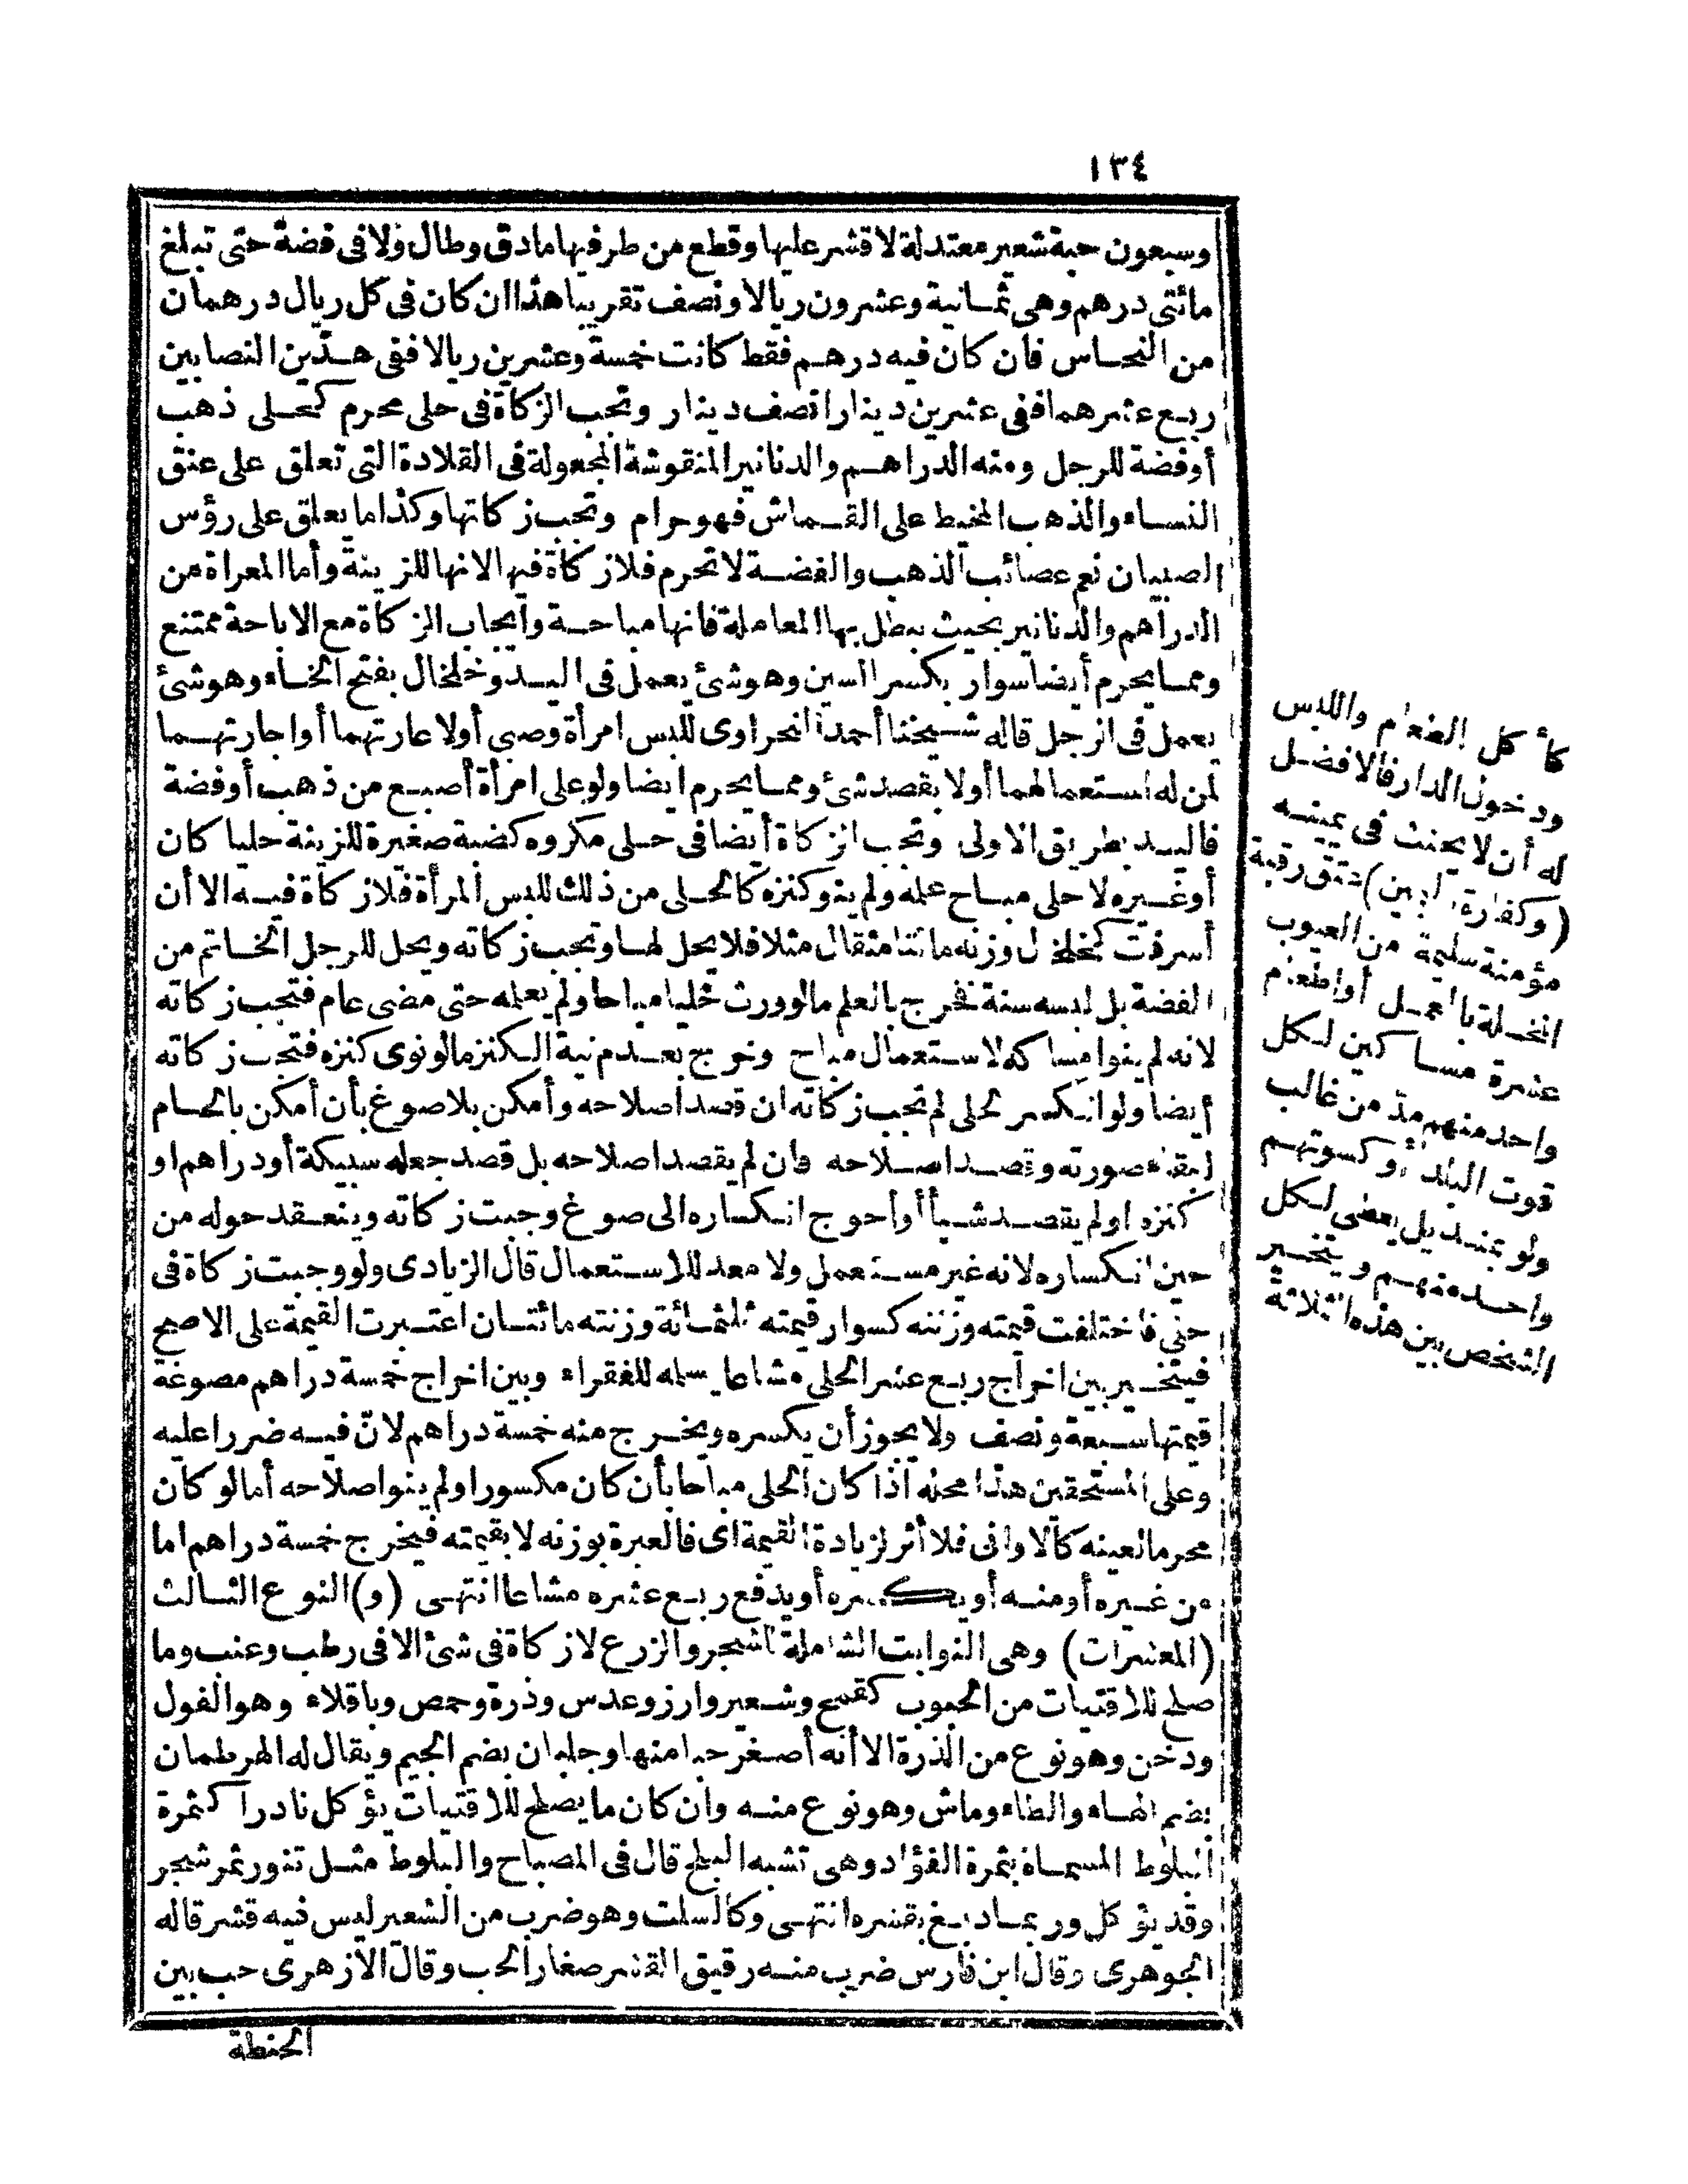 ١٣٤
وسبعون حبة شعير معتدلة لا قشر عليها وقطع من طرفيها مادق وطال ولا فى فضة حتى تبلغ
مائتى درهم وهى ثمانية وعشرون ريالا ونصف تقريبا هذا ان كان فى كل ريال درهمان
من النحاس فان كان فيه درهم فقط كانت خمسة وعشرين ريالا ففى هذين النصابين
ربع عشرهما ففى عشرين دينارا نصف دينار وتجب الزكاة فى حلى محرم كحلى ذهب
أوفضة للرجل ومنه الدراهم والدنانير المنقوشة المجعولة فى القلادة التى تعلق على عنق
النساء والذهب المخيط على القماش فهو حرام وتجب زكاتها وكذا ما يعلق على رؤس
الصبيان نعم عصائب الذهب والفضة لا تحرم فلا زكاة فيها لانها للزينة وأما المعراة من
الدراهم والدنانير بحيث يبطل بها المعاملة فانها مباحة وايجاب الزكاة مع الاباحة ممتنع
ومما يحرم أيضا سوار بكسر السين وهو شئ يعمل فى اليد وخلخال بفتح الخاء وهو شئ
يعمل فى الرجل قاله شيخنا أحمد النحراوى للبس امرأة وصبى أو لاعارتهما أواجارتهما
لمن له استعمالهما أولا بقصد شئ ومما يحرم ايضا ولو على امرأة أصبع من ذهب أوفضة
فاليد بطريق الاولى وتجب الزكاة أيضا فى حلى مكروه كضبة صغيرة للزينة حليا كان
أوغيره لا حلى مباح علمه ولم ينو كنزه كالحلى من ذلك للبس المرأة فلا زكاة فيه الا أن
أسرفت كخلخال وزنه مائتا مثقال مثلا فلا يحل لها وتجب زكاته ويحل للرجل الخاتم من
الفضة بل لبسه سنة فخرج بالعلم مالو ورث حليا مباحا ولم يعلمه حتى مضى عام فتجب زكاته
لانه لم ينو امساكه لاستعمال مباح وخرج بعدم نية الكنز مالو نوى كنزه فتجب زكاته
أيضا ولو انكسر الحلى لم تجب زكاته ان قصد اصلاحه وأمكن بلا صوغ بأن أمكن بالحام
لبقاء صورته وقصد اصلاحه فان لم يقصد اصلاحه بل قصد جعله سبيكة أودراهم او
كنزه اولم يقصد شيأ أوأحوج انكساره الى صوغ وجبت زكاته وينعقد حوله من
حين انكساره لانه غير مستعمل ولا معد للاستعمال قال الزيادى ولو وجبت زكاة فى
حلى فاختلفت قيمته وزنته كسوار قيمته ثلثمائة وزنته مائتان اعتبرت القيمة على الاصح
فيتخير بين اخراج ربع عشر الحلى مشاعا يسلمه للفقراء وبين اخراج خمسة دراهم مصوغة
قيمتها سبعة ونصف ولا يجوز أن يكسره ويخرج منه خمسة دراهم لانّ فيه ضررا عليه
وعلى المستحقين هذا محله اذا كان الحلى مباحا بأن كان مكسورا ولم ينو اصلاحه أما لو كان
محرما لعينه كالاوانى فلا أثر لزيادة القيمة اى فالعبرة بوزنه لا بقيمته فيخرج خمسة دراهم اما
من غيره أومنه أويكسره أويدفع ربع عشره مشاعا انتهى (و) النوع الثالث
(المعشرات) وهى النوابت الشاملة الشجر والزرع لا زكاة فى شئ الا فى رطب وعنب وما
صلح للاقتيات من الحبوب كقمح وشعير وارز وعدس وذرة وحمص وباقلاء وهو الفول
ودخن وهو نوع من الذرة الا أنه أصغر حبا منها وجلبان بضم الجيم ويقال له الهرطمان
بضم الهاء والطاء وماش وهو نوع منه وان كان ما يصلح للاقتيات يؤكل نادرا كثمرة
البلوط المسماة بثمرة الفؤاد وهى تشبه البلح قال فى المصباح والبلوط مثل تنور ثمر شجر
وقد يؤكل وربما دبغ بقشره انتهى وكالسلت وهو ضرب من الشعير ليس فيه قشر قاله
الجوهرى وقال ابن فارس ضرب منه رقيق القشر صغار الحب وقال الازهرى حب بين
الحنطة
كأكل الطعام واللبس
ودخول الدار فالافضل
له أن لا يحنث فى يمينه
(وكفارة اليمين) عتق رقبة
مؤمنة سليمة من العيوب
المخلة بالعمل أواطعام
عشرة مساكين لكل
واحد منهم مدّ من غالب
قوت البلد أوكسوتهم
ولو بمنديل يعطى لكل
واحد منهم ويتخير
الشخص بين هذه الثلاثة